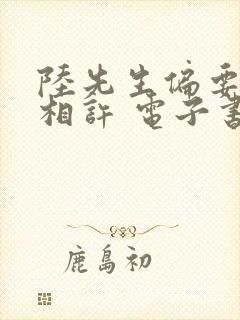 陸先生偏要
相許 電子書
鹿島初